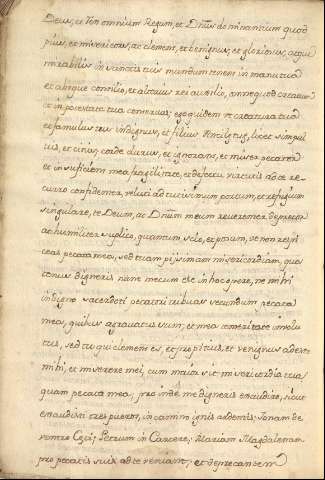 Deus, et Rex omnium Regum, et Dñus dominantium quod
pius, et misericors, ac clement, et benignus, et gloriosus, atqui
mirabilis in sanctis tuis mundum tenens in manu tua
et absque consilio, et alicuius rei auxilio, omne quod creatum
est in potestate tua conservas; ego quidem ut creatura tua
et famulus tuus indignus, et filius Ancillæ tuæ, licet simpul
uis, et cinis, corde durus, et ignorans, et miser peccator
et insuficiens mea fragilitate, et defectu virtutis ad te re
curro confidenter, velut ad tutissimum portum, et refugium
singulare, te Deum, ac Dñum meum reverenter deprecor
ac humiliter suplico, quantum scio, et possum, ut non respi
cias peccata mea, sed tuam pijssimam misericordiam, qua
tenus digneris nunc mecum esse in hoc opere, ne mihi
indigno sacerdoti peccatori tribuas secundum peccata
mea, quibus agravatus sum, et mea temeritate involu
tus, sed tu qui clemens es, et propitius, et benignus adesto
mihi, et miserere mei, cum maior sit misericordia tua
quam peccata mea; pro inde me digneris exaudire, sicut
exaudisti tres pueros, in camino ignis ardentis: Ionam de
ventre Ceti; Petrum in Carcere; Mariam Magdalenam
pro peccatis suis ad te venientem, et deprecantem